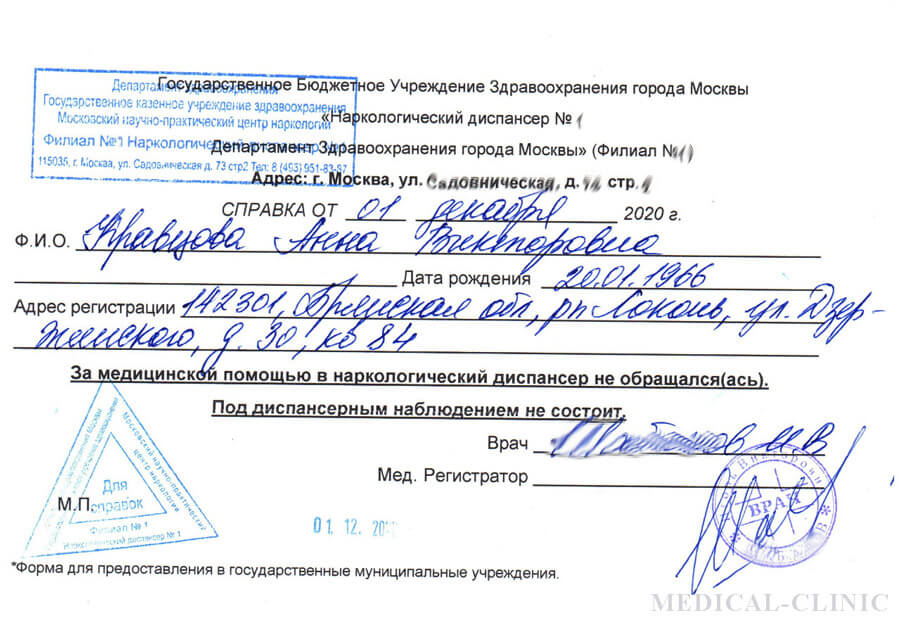 Государственное Бюджетное Учреждение Здравоохранения города Москвы
«Наркологический диспансер № 1
Департамент Здравоохранения города Москвы» (Филиал №1)
Адрес: г. Москва, ул. Садовническая, д. стр.
Департамент здравоохранения
Государственное казенное учреждение здравоохранения
Московский научно-практический центр наркологии
Филиал №1 Наркологический
115035, г. Москва, ул. Садовническая д. 73 стр2 Тел: 8 (493) 951-83-87
СПРАВКА ОТ 01 декабря 2020 г.
Ф.И.О. Кравцова Анна Викторовна
Дата рождения 20.01.1966
Адрес регистрации 142301, Брянская обл, рп Локоть, ул. Дзер-
жинского, д. 30, кв 84
За медицинской помощью в наркологический диспансер не обращался(ась).
Под диспансерным наблюдением не состоит.
Врач И В
Мед. Регистратор
М.П.
Для
справок
Московский научно-практический
центр наркологии
Филиал № 1
Наркологический диспансер № 1
01. 12.
ВРАЧ
*Форма для предоставления в государственные муниципальные учреждения.
MEDICAL-CLINIC